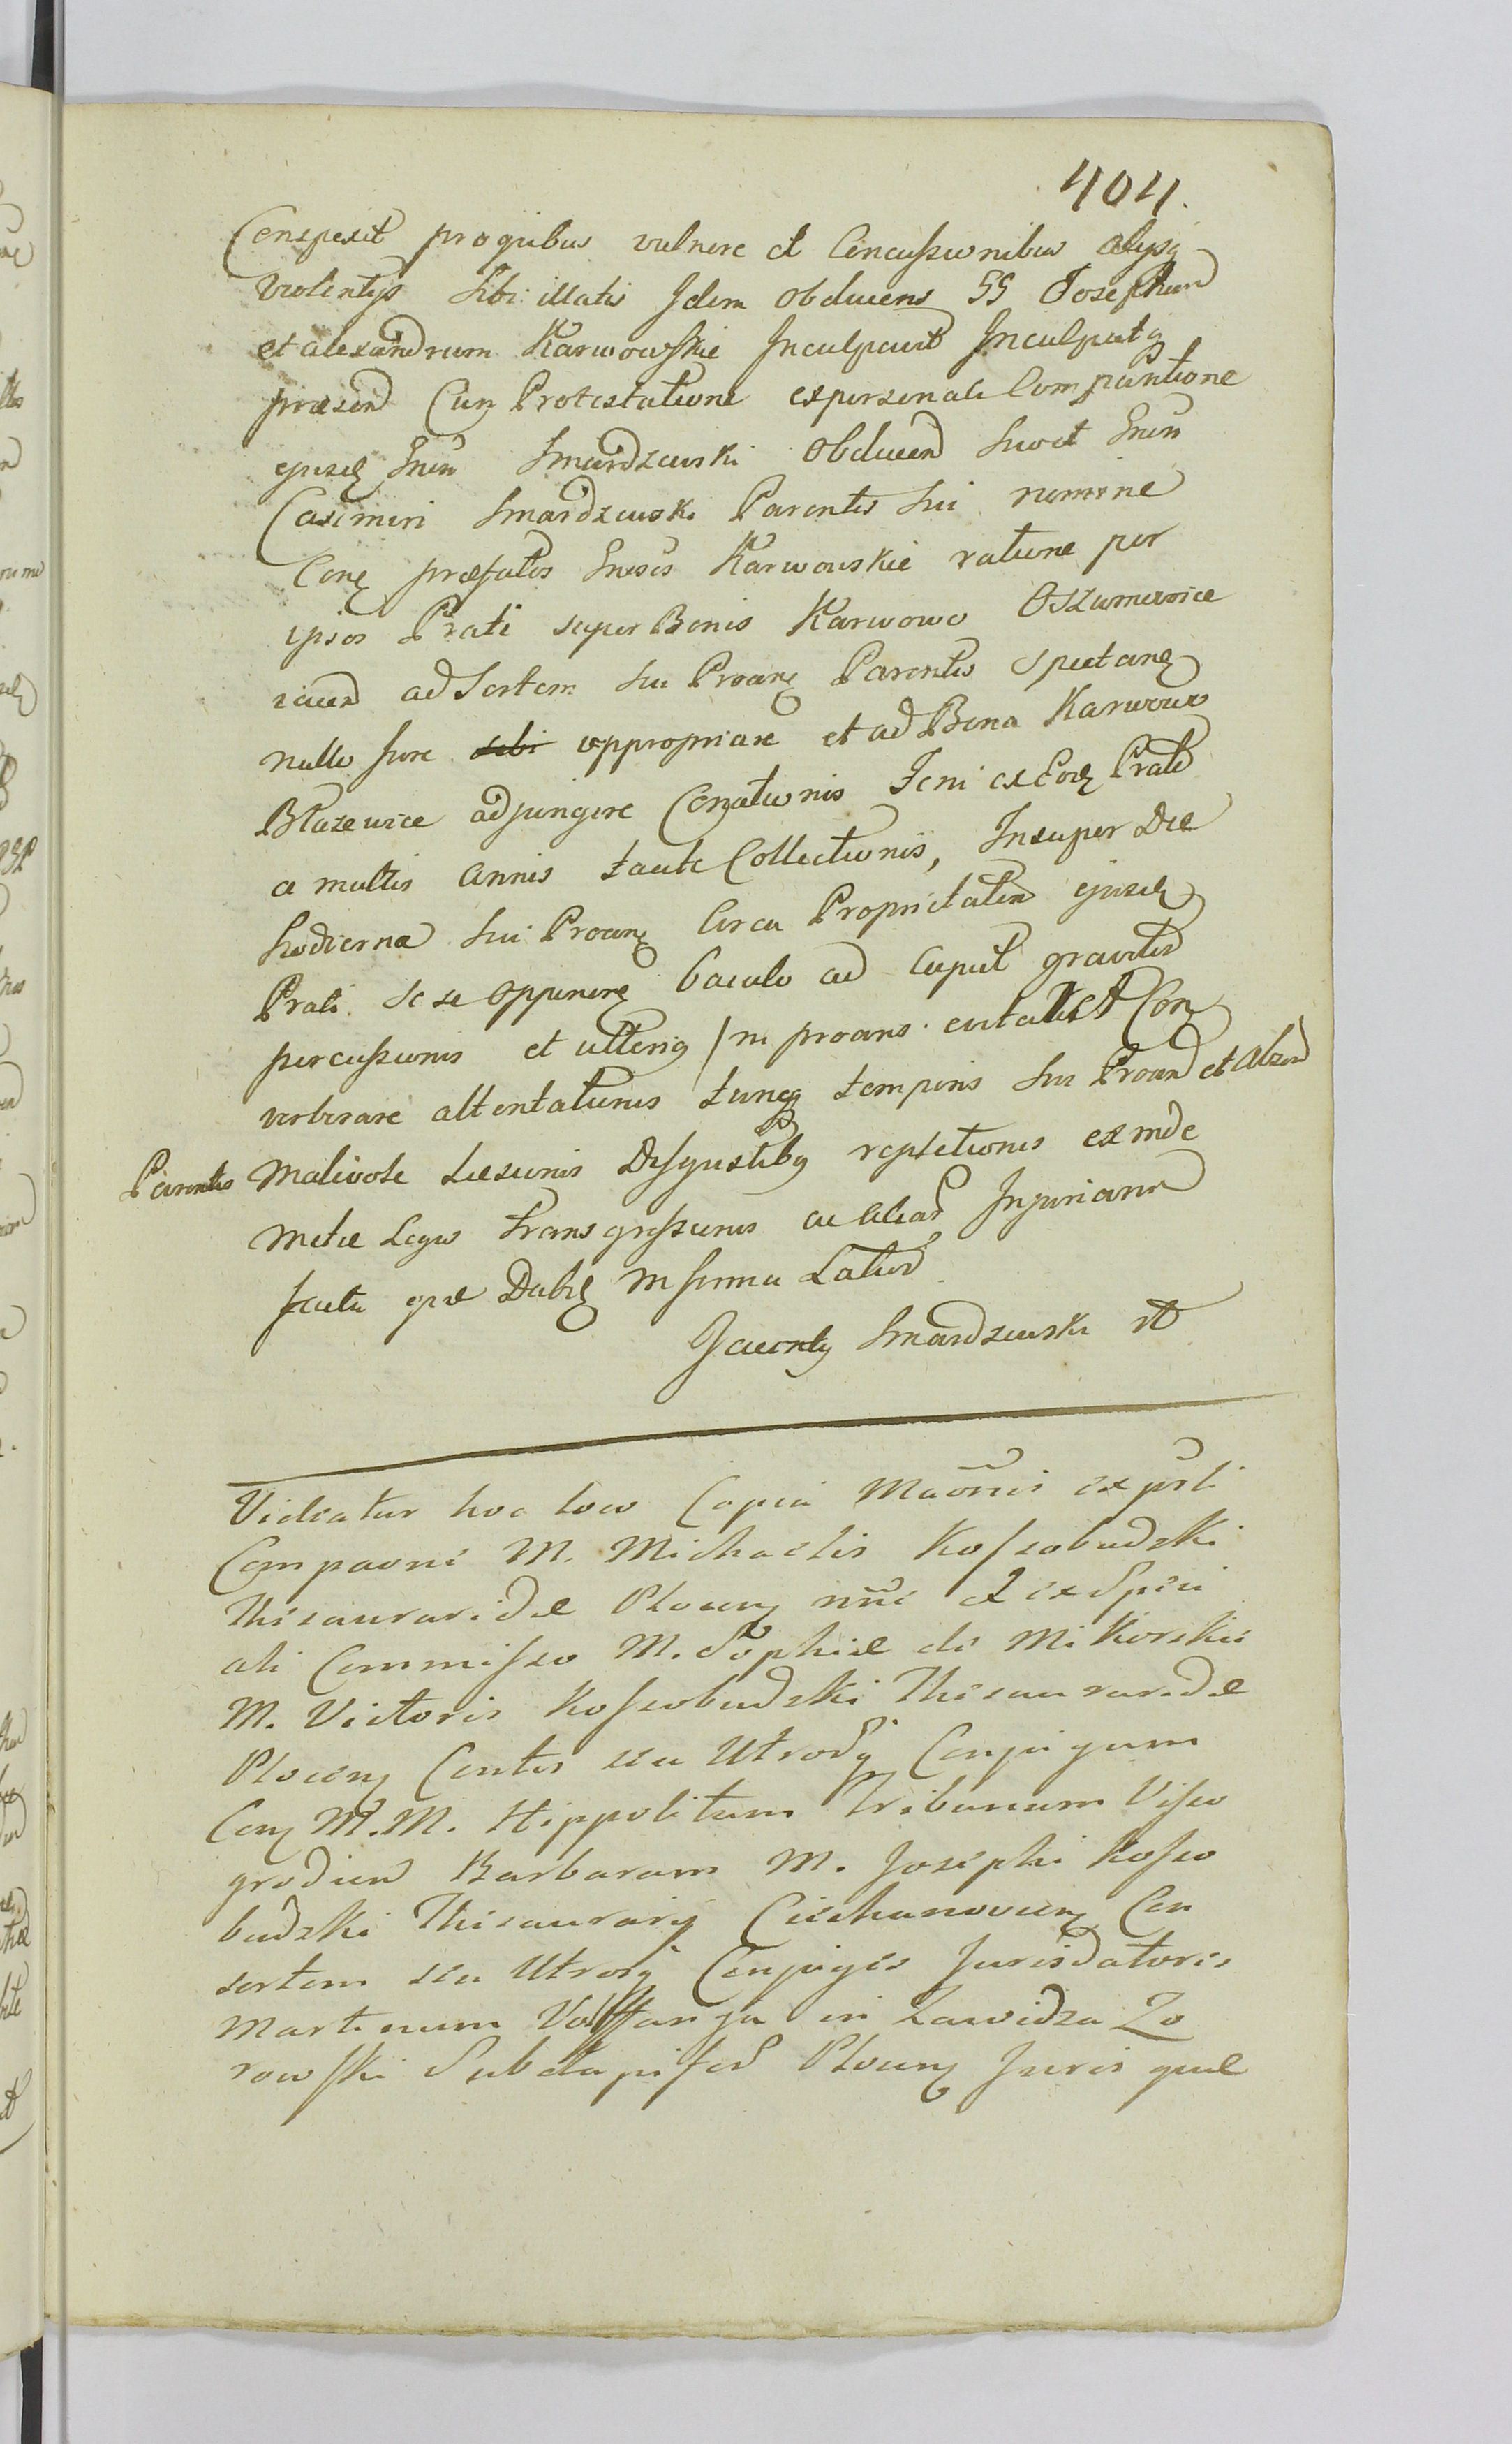 404.
Conspexit pro quibus vulnere et Concussionibus alysq
violentys sibi illatis Idem obducens GG Josephum
et alexandrum Karwowskie Inculpavit Inculpatq
praesend Cum Protestatione ex personali Comparitione
ejusd Gnsi Smardzewski obducend suo et Gnsi
Casimiri Smardzewski Parentis sui nomine
Con praefatos Gnsos Karwowskie ratione per
ipsos Prati super Bonis Karwowo Oszumiewice
iacen ad Sortem sui Proan Parentis spectan
nullo Jure sibi appropriare et ad Bona Karwowo
Blazewice adjungere Conationis Feni ex Eod Prato
a multis annis facte Collectionis, Insuper Die
hodierna sui Proan Circa Proprietatem ejusd
Prati se se opponen baculo ad Caput graviter
percussionis et ulteriq in proans et Con
verberare attentationis tunq temporis sui Proan et absen
Parentis Malivole Laesionis Disgustibq repletionis exinde
metae Legis transgressionis ac aliar Injuriarum
facta que Dabit in forma Latiori
Jacenty Smardzewski mp
Videatur hoc loco Copia Maonis ex psli
Compaone M. Michaelis Kossobudzki
Thesauraridae Plocen nne et ex Speci
ali Commisso M. Sophiae de Mikorskie
M. Victoris Kossobudzki Thesauraridae
Plocen Contis seu Utrorq Conjugum
Con M.M. Hippolitum Tribunum Visso
grodien Barbaram M. Josephi Kosso
budzki Thesaurarii Ciechanovien Con
sortem seu Utrosq Conjuges Jurisdatores
Martinum in Zawidza Zo
rowski Subdapifer Plocen Juris quae